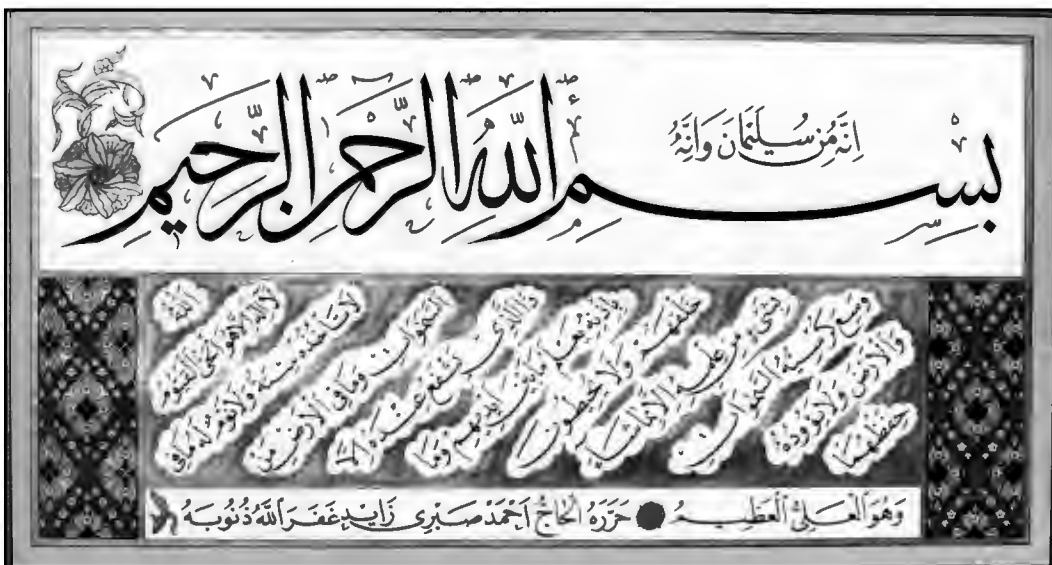 اِنَّهُ مِن سُلَيْمَانَ وَاِنَّهُ
بِسْمِ اللهِ الرَّحْمٰنِ الرَّحِيمِ
الله
لا اله الا هو الحي القيوم
لا تأخذه سنة ولا نوم له ما في
السموات وما في الارض من
ذا الذي يشفع عنده الا
باذنه يعلم ما بين ايديهم وما
خلفهم ولا يحيطون
بشيء من علمه الا بما شاء
وسع كرسيه السموات
والارض ولا يؤوده
حفظهما
وَهُوَ الْعَلِيُّ الْعَظِيمُ حَرَّرَهُ الْحَاجّ اَحْمَدْ صَبْرِى زَايِدْ غَفَرَ اللَّهُ ذُنُوبَهُ